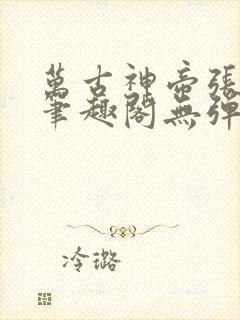 萬古神帝張
筆趣閣無彈
冷璐